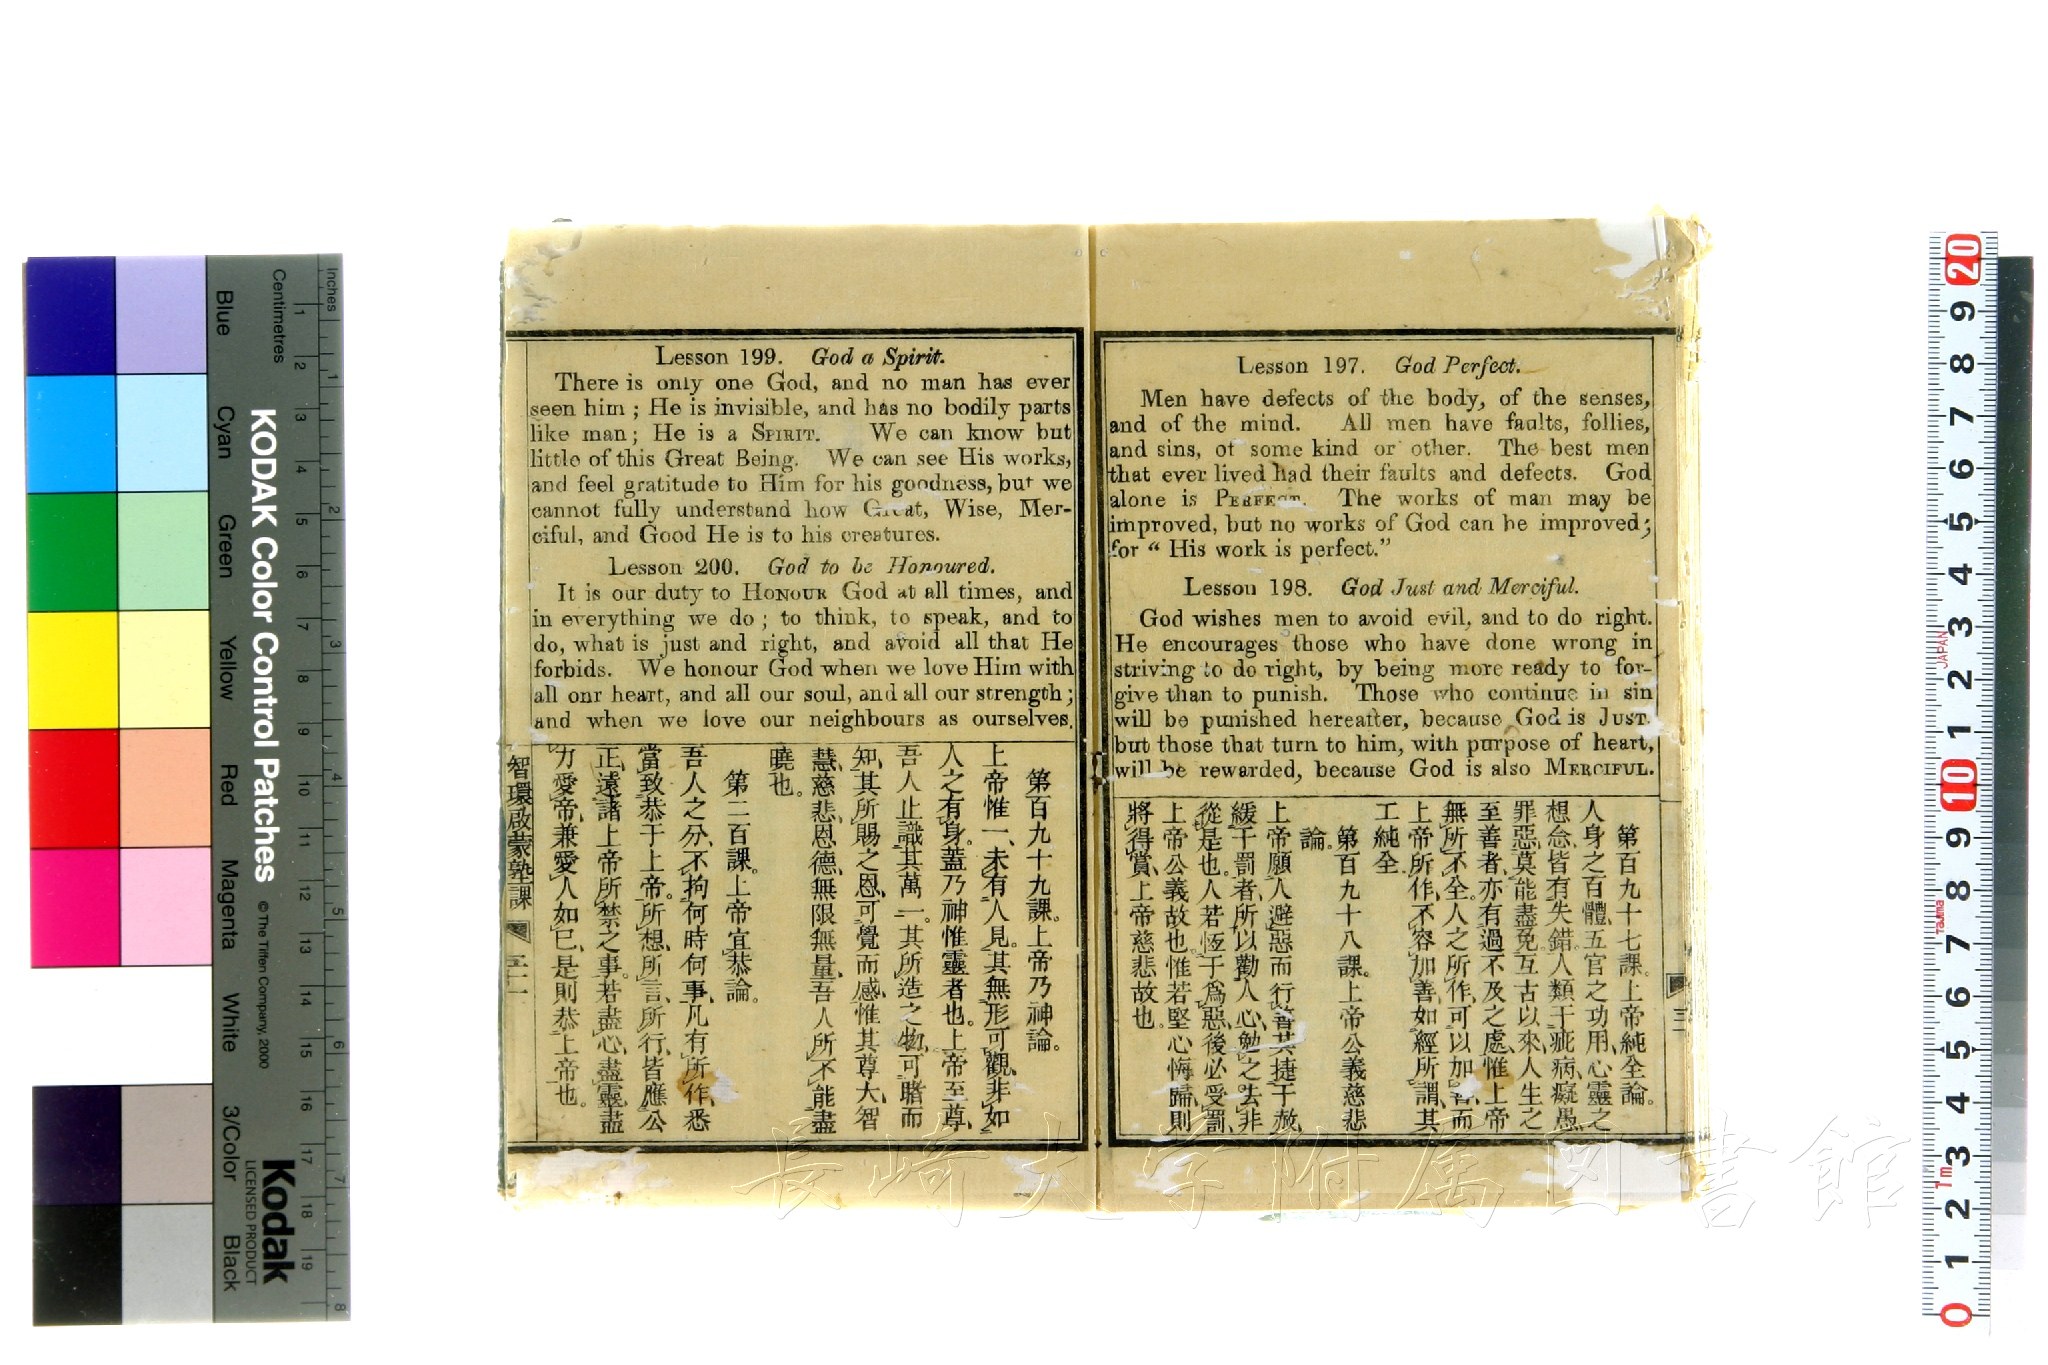 Lesson 197. God Perfect.
Men have defects of the body, of the senses,
and of the mind. All men have faults, follies,
and sins, of some kind or other. The best men
that ever lived had their faults and defects. God
alone is PERFECT. The works of man may be
improved, but no works of God can be improved;
for “ His work is perfect.”
Lesson 198. God Just and Merciful.
God wishes men to avoid evil, and to do right.
He encourages those who have done wrong in
striving to do right, by being more ready to for-
give than to punish. Those who continue in sin
will be punished hereafter, because God is JUST
but those that turn to him, with purpose of heart,
will be rewarded, because God is also MERCIFUL.
第百九十七課。上帝純全論。
人身之百體、五官之功用、心靈之
想念、皆有失錯。人類干疵病、癡愚、
罪惡、莫能盡免。亙古以來、人生之
至善者、亦有過不及之處、惟上帝
無所不全。人之所作、可以加善、而
上帝所作、不容加善、如經所謂、其
工純全
第百九十八課。上帝公義慈悲
論。
上帝願人避惡而行善、其捷于赦、
緩于罰者、所以勸人心、勉之去非
從是也。人若恆于爲惡、後必受罰、
上帝公義故也。惟若堅心悔歸、則
將得賞、上帝慈悲故也。
Lesson 199. God a Spirit.
There is only one God, and no man has ever
seen him ; He is invisible, and has no bodily parts
like man; He is a SPIRIT. We can know but
little of this Great Being. We can see His works,
and feel gratitude to Him for his goodness, but we
cannot fully understand how Great, Wise, Mer-
ciful, and Good He is to his creatures.
Lesson 200. God to be Honoured.
It is our duty to HONOUR God at all times, and
in everything we do ; to think, to speak, and to
do, what is just and right, and avoid all that He
forbids. We honour God when we love Him with
all our heart, and all our soul, and all our strength ;
and when we love our neighbours as ourselves.
第百九十九課。上帝乃神論。
上帝惟一、未有人見。其無形可觀、非如
人之有身。蓋乃神惟靈者也。上帝至尊、
吾人止識其萬一。其所造之物、可睹而
知、其所賜之恩、可覺而感、惟其尊大、智
慧、慈悲、恩德、無限無量、吾人所不能盡
曉也。
第二百課。上帝宜恭論。
吾人之分、不拘何時何事、凡有所作、悉
當致恭于上帝。所想、所言、所行、皆應公
正、遠諸上帝所禁之事。若盡心、盡靈、盡
力、愛帝、兼愛人如己、是則恭上帝也。
智環啟蒙塾課
長崎大学附属図書館
KODAK Color Control Patches
© The Tiffen Company, 2000
Kodak
LICENSED PRODUCT
Inches
Centimetres
Blue
Cyan
Green
Yellow
Red
Magenta
White
3/Color
Black
1 2 3 4 5 6 7 8 9 10 11 12 13 14 15 16 17 18 19
1 2 3 4 5 6 7 8
20 9 8 7 6 5 4 3 2 1 10 9 8 7 6 5 4 3 2 1 0
JAPAN
Tajima
1m